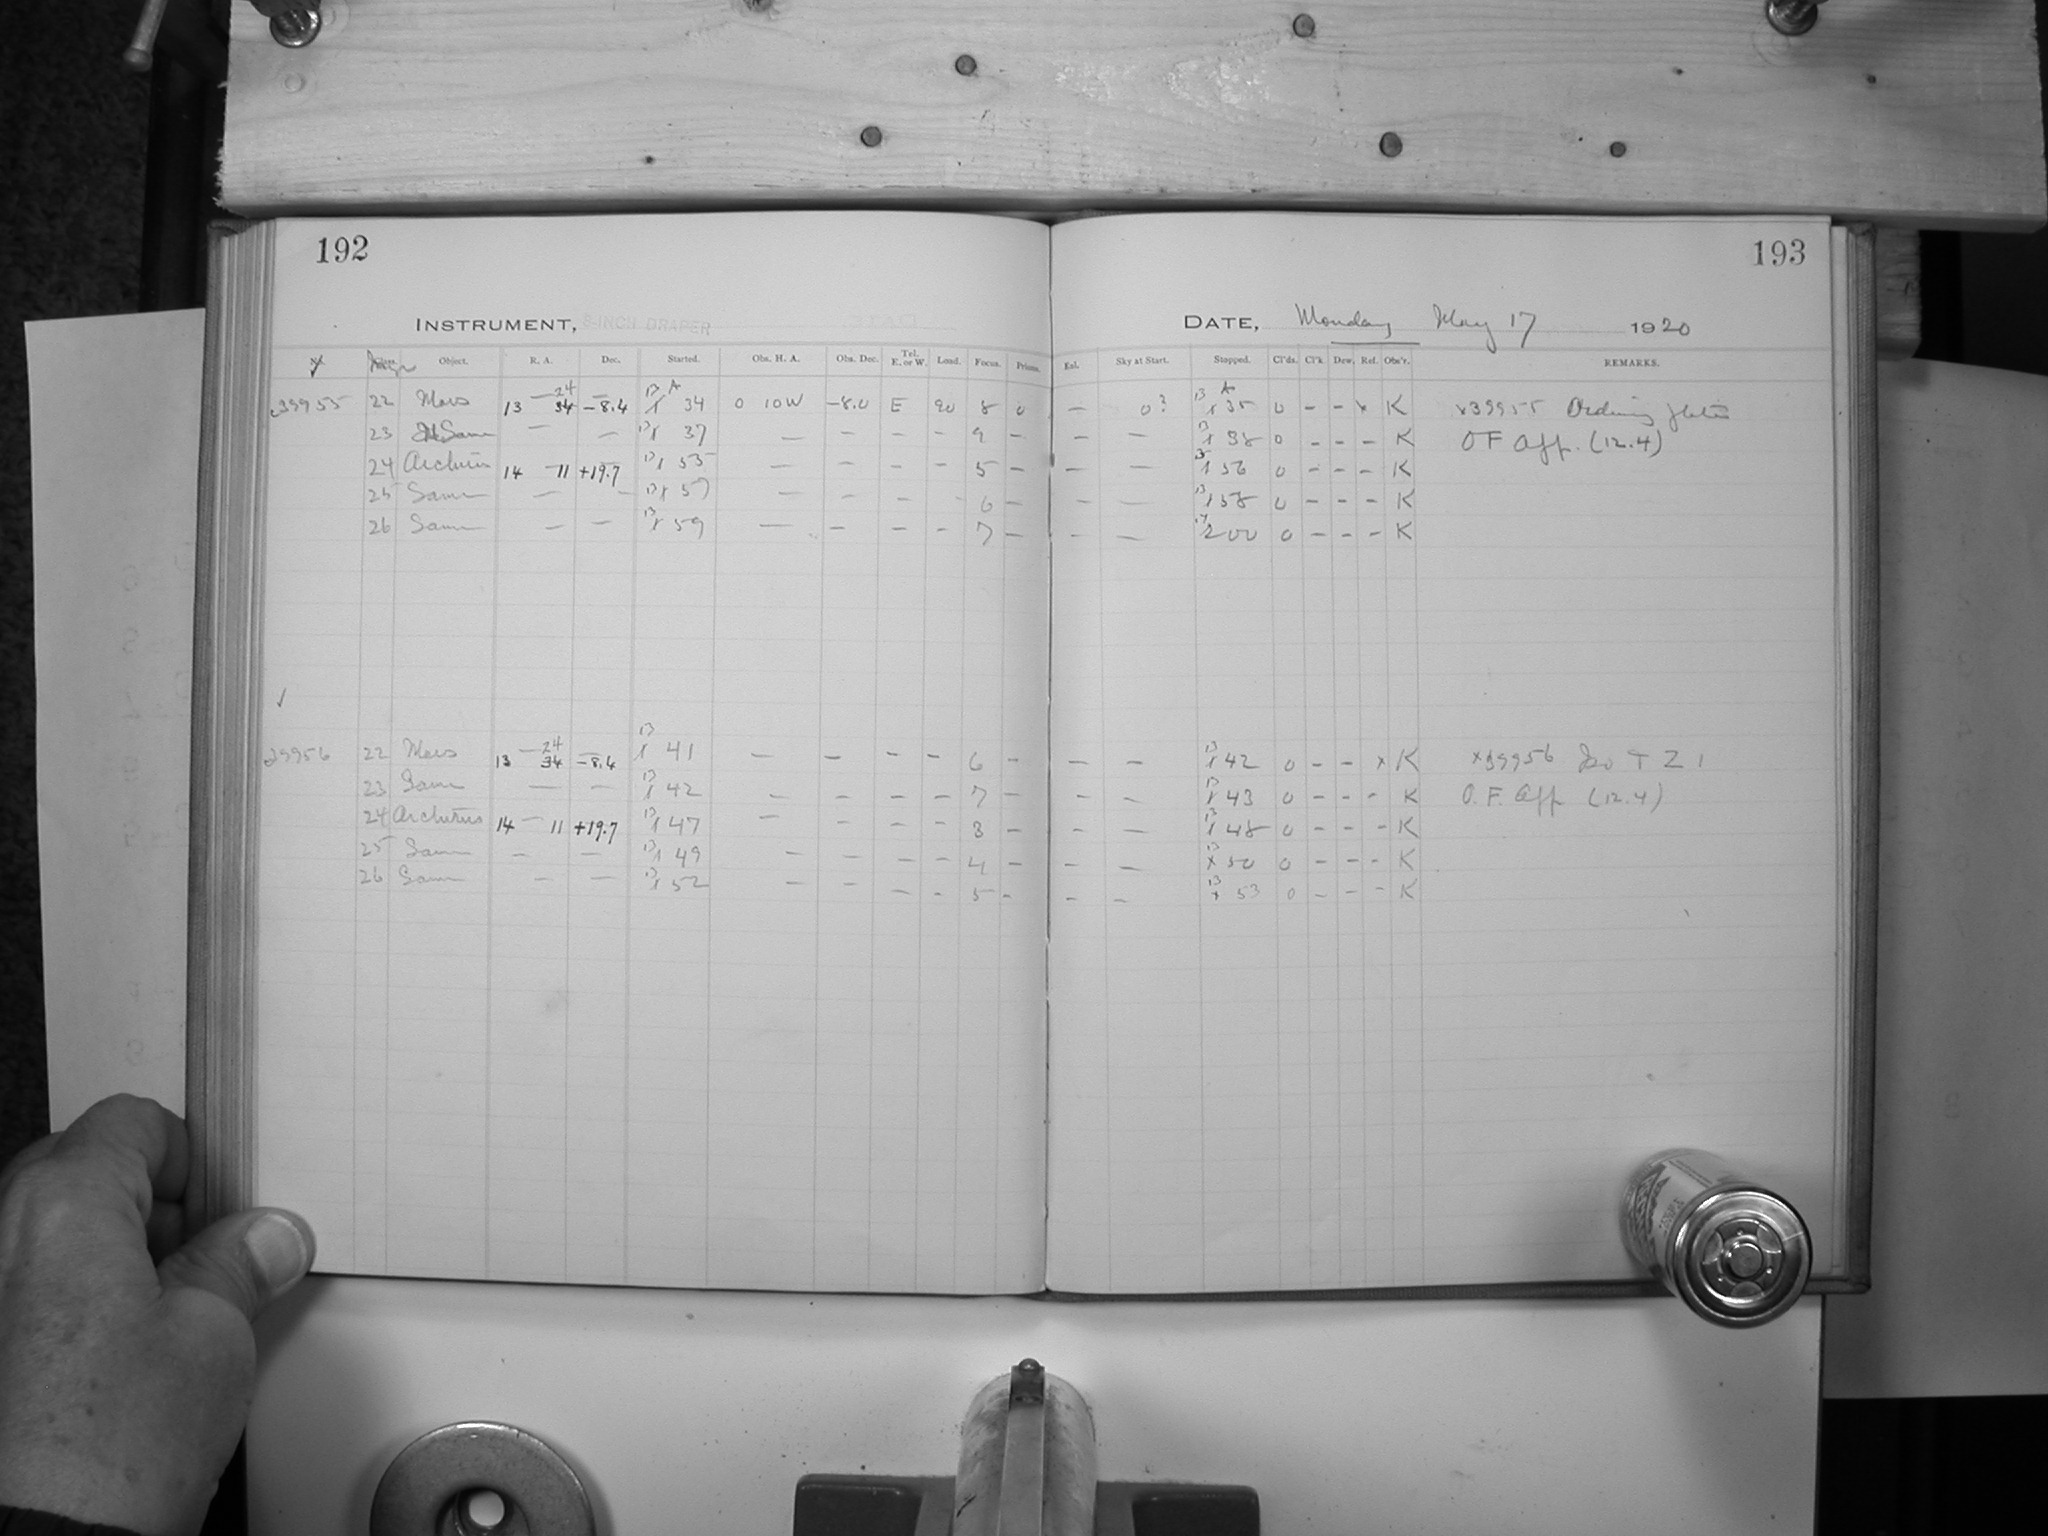 192
193
INSTRUMENT, 8-INCH DRAPER
DATE, Monday May 17 1920
Object. R. A. Dec. Started. Obs. H. A. Obs. Dec. Tel. E. or W. Load. Focus. Prisms. Exl. Sky at Start. Stopped. Cl'ds. Cl'k Dew. Ref. Obs'r. REMARKS.
39955 22 Mars 13 24 34 -8.4 13 A 34 0 10W -8.0 E 90 8 0 - 0? 13 A 35 0 - - x K x39955 Ordinary plates
23 Same — — 13 37 — - - - 9 - - — 13 38 0 - - - K O F App. (12.4)
24 Arcturus 14 11 +19.7 13 55 — - - - 5 - - — 56 0 - - - K
25 Same — — 13 57 — - - - 6 - - — 13 58 0 - - - K
26 Same — — 13 59 — - - - 7 - - — 14 200 0 - - - K
39956 22 Mars 13 24 34 -8.4 13 41 — - - - 6 - - — 13 42 0 - - x K x39956 Iso T Z 1
23 Same — — 13 42 — - - - 7 - - — 13 43 0 - - - K O. F. App (12.4)
24 Arcturus 14 11 +19.7 13 47 — - - - 3 - - — 13 48 0 - - - K
25 Same — — 13 49 — - - - 4 - - — 13 50 0 - - - K
26 Same — — 13 52 — - - - 5 - - — 13 53 0 - - - K